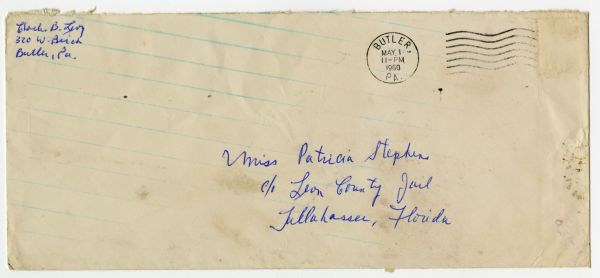 Chas. B. Levy
320 W. Birch
Butler, Pa.
BUTLER,
MAY, 1
11-PM
1960
PA.
Miss Patricia Stephens
c/o Leon County Jail
Tallahassee, Florida